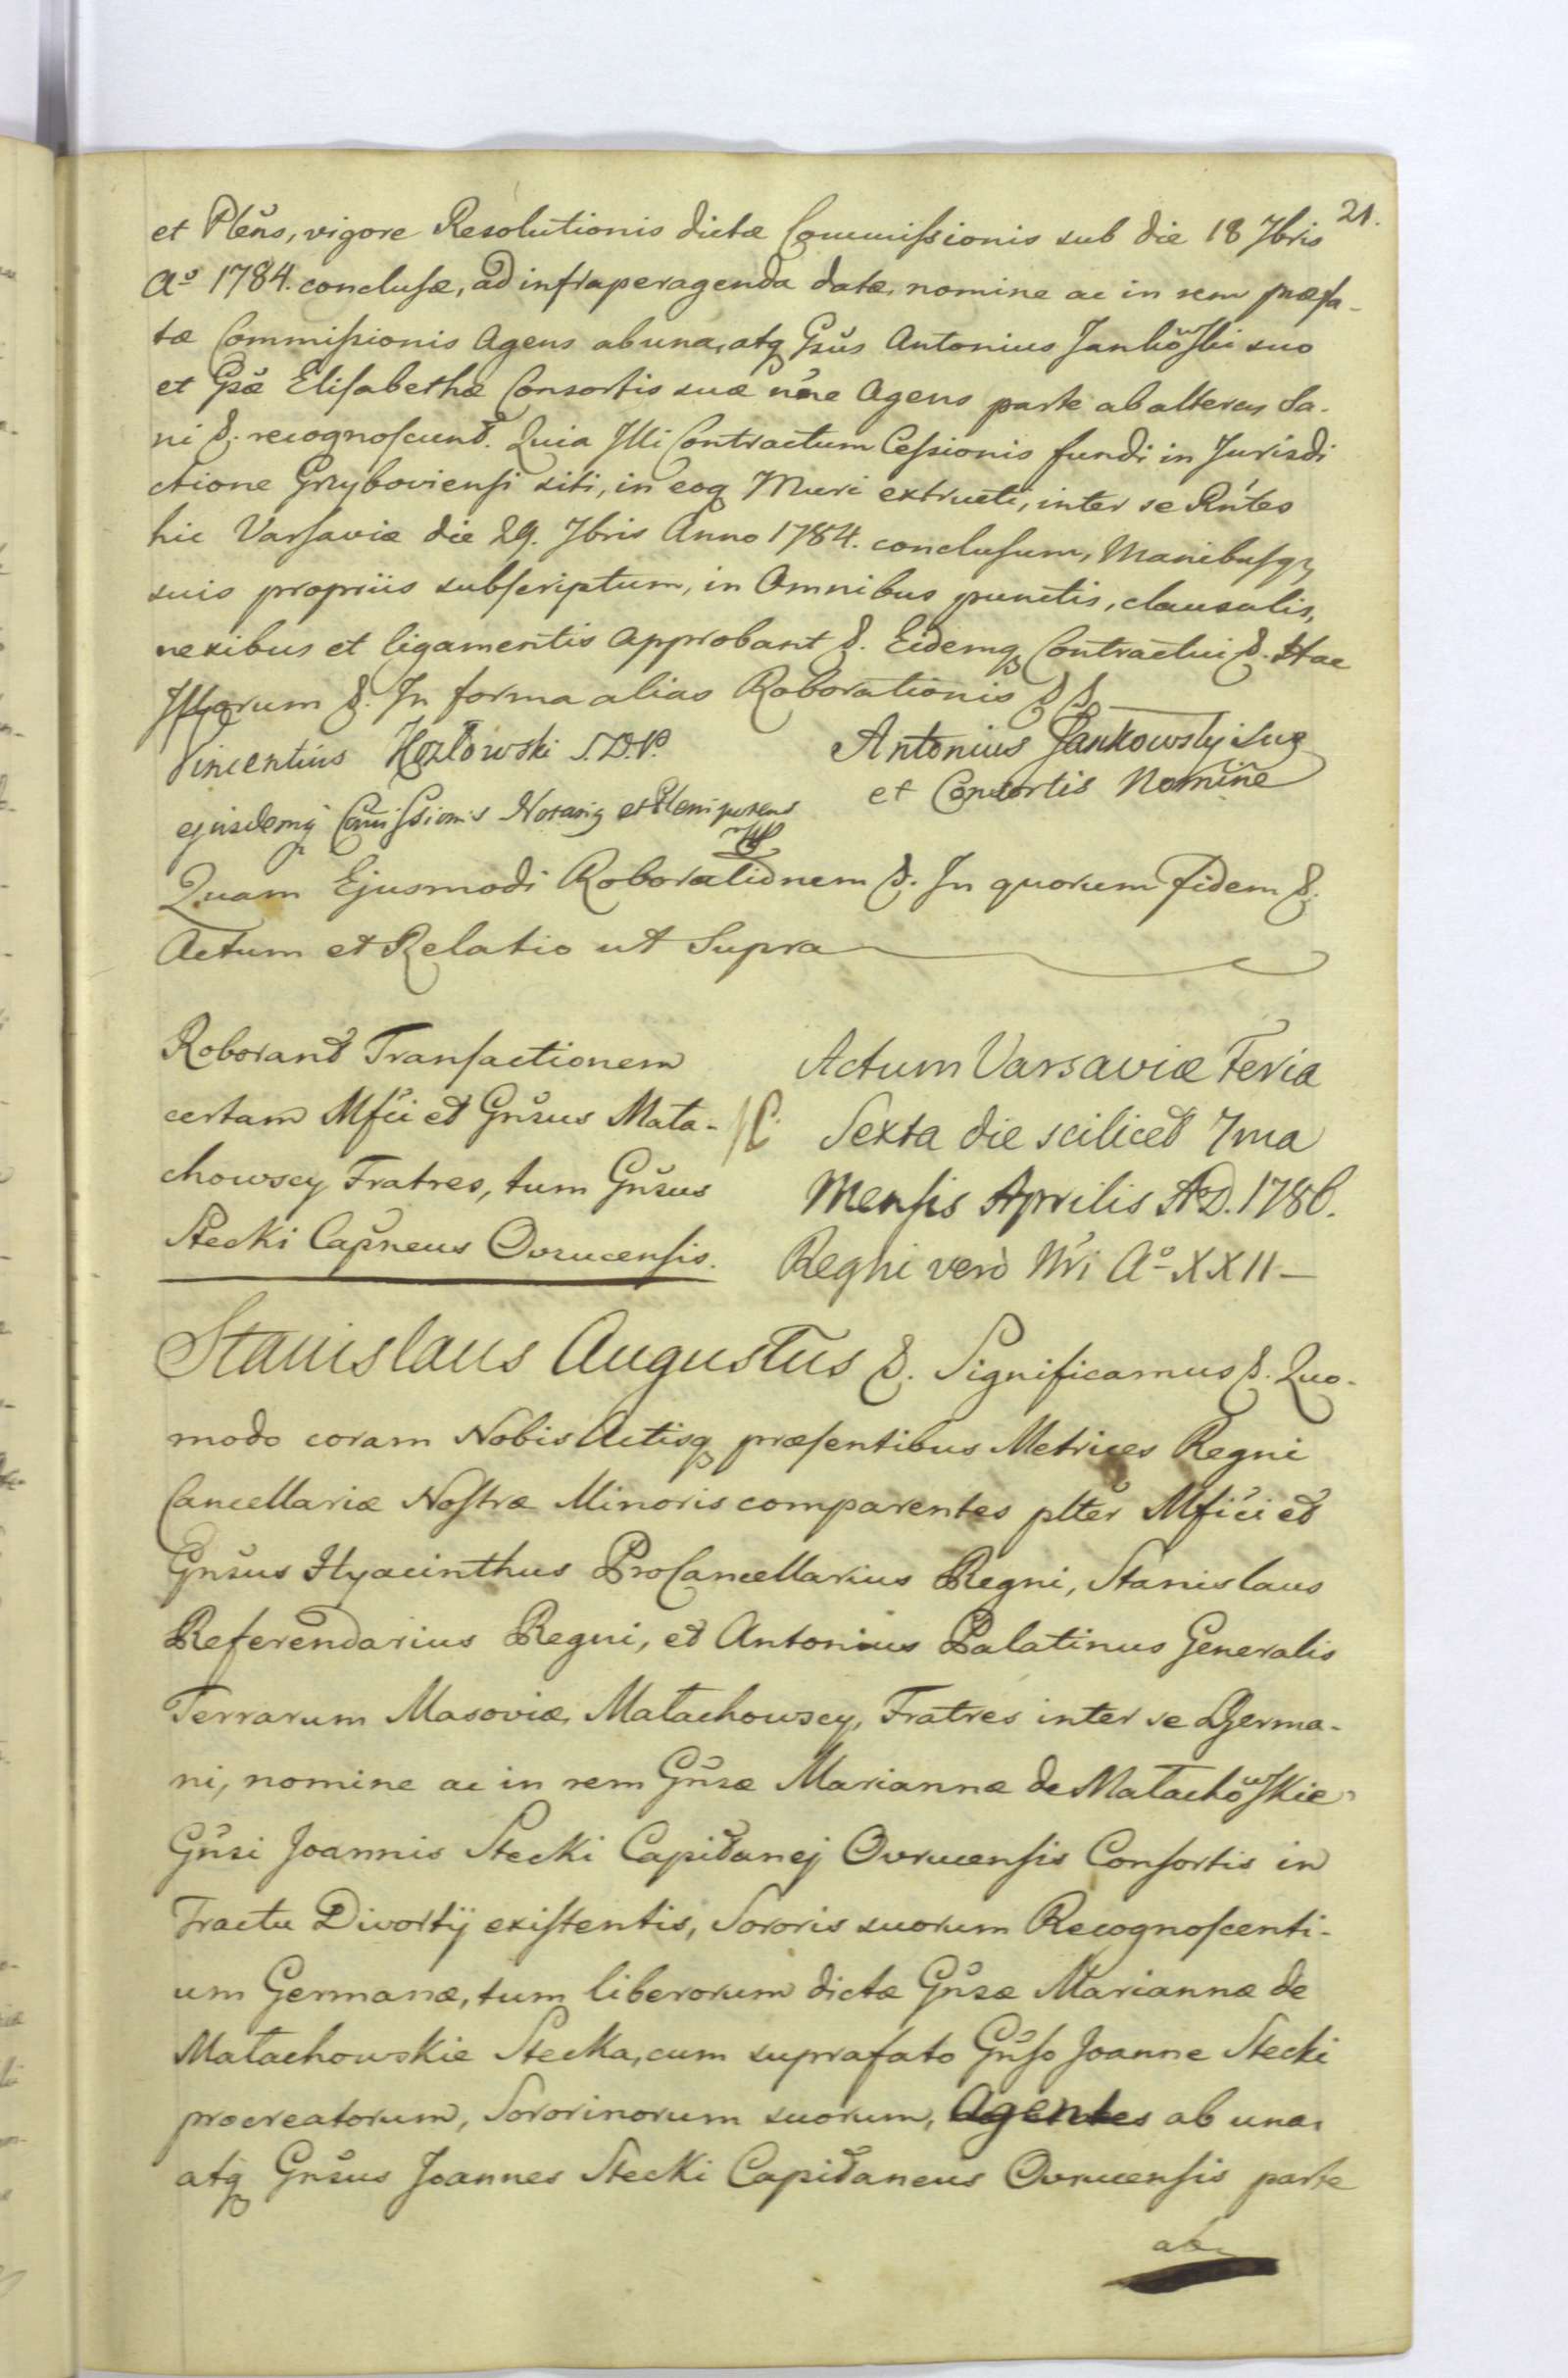 21.
et Pleňs, vigore Resolutionis dictæ Commiſsionis sub die 18 7bris
Aº 1784. concluſæ, ad infraperagenda datæ, nomine ac in rem præfa-
tæ Commiſsionis Agens ab una, atq Gsŭs Antonius Jankowſki suo
et Gsæ Eliſabethæ Consortis suæ nŏne Agens parte ab altera, Sa-
ni &. recognoſcunt. Quia Illi Contractum Ceſsionis fundi in Jurisdi
ctione Grzyboviensi siti, in eoq Muri extructi, inter se Rn̆tes
hic Varſaviæ die 29. 7bris Anno 1784. concluſum, Manibuſq,
suis propriis subſcriptum, in Omnibus punctis, clausulis,
nexibus et ligamentis Approbant &. Eidemq Contractui &. Hac
Illorum &. In forma alias Roborationis &&
Vincentius Kozłowski S.D.P.
ejusdemq Com̃iſsionis Notariq et Plenipotens
mp
Antonius Jankowsky Suo
et Consortis Nomine
Quam Ejusmodi Roborationem &. In quorum Fidem &.
Actum et Relatio ut Supra
Roborant Tranſactionem
certam Mfĭci et Gnŭsus Mała-
chowscy Fratres, tum Gnŭsus
Stecki Capn̆eus Ovrucenſis.
Actum Varsaviæ Feria
Sexta die scilicet 7ma
Menſis Aprilis A.D. 1786.
Regni verò Nr̆i Aº XXII
Stanislaus Augustus &. Significamus &. Quo-
modo coram Nobis Actisq præſentibus Metrices Regni
Cancellariæ Noſtræ Minoris comparentes pltĕr Mfĭci et
Gnŭsus Hyacinthus ProCancellarius Regni, Stanislaus
Referendarius Regni, et Antonius Palatinus Generalis
Terrarum Masoviæ, Małachowscy, Fratres inter se Germa-
ni, nomine ac in rem Gnŭsæ Mariannæ de Małachowſkie
Gnŭsi Joannis Stecki Capitanej Ovrucenſis Conſortis in
Tractu Divortij exiſtentis, Sororis suorum Recognoſcenti-
um Germanæ, tum liberorum dictæ Gnŭsæ Mariannæ de
Małachowskie Stecka, cum suprafato Gnŭſo Joanne Stecki
procreatorum, Sororinorum suorum, Agentes ab una,
atq Gnŭsus Joannes Stecki Capitaneus Ovrucenſis parte
ab